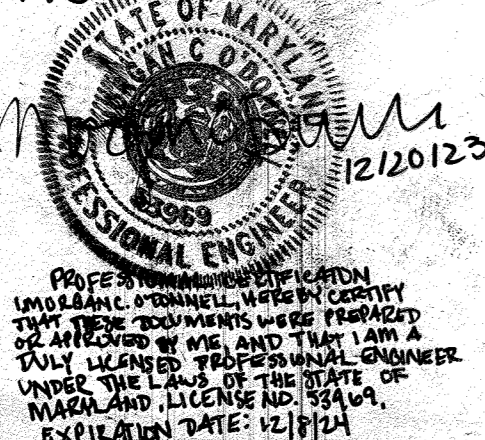 STATE OF MARYLAND
MORGAN C O'DONNELL
53969
PROFESSIONAL ENGINEER
12/20/23
PROFESSIONAL CERTIFICATION
I, MORGAN C. O'DONNELL, HEREBY CERTIFY
THAT THESE DOCUMENTS WERE PREPARED
OR APPROVED BY ME, AND THAT I AM A
DULY LICENSED PROFESSIONAL ENGINEER
UNDER THE LAWS OF THE STATE OF
MARYLAND, LICENSE NO. 53969,
EXPIRATION DATE: 12/8/24